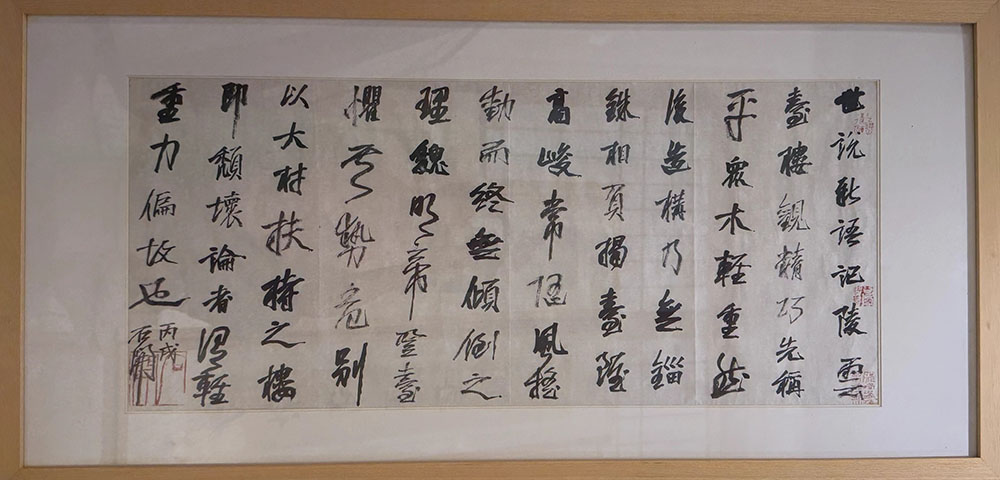 世說新語記陵雲
臺樓觀精巧先稱
平眾木輕重然
後造構乃無錙
銖相負揭臺雖
高峻常隨風搖
動而終無傾倒之
理魏明帝登臺
懼其勢危別
以大材扶持之樓
即頹壞論者謂輕
重力偏故也
丙戌